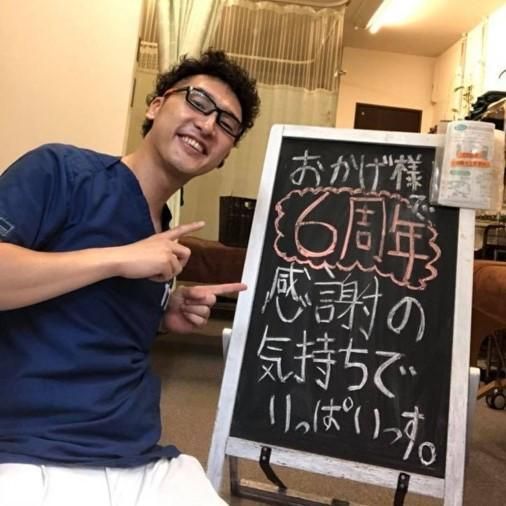 おかげ様で、
6周年
感謝の
気持ちで
いっぱいっす。